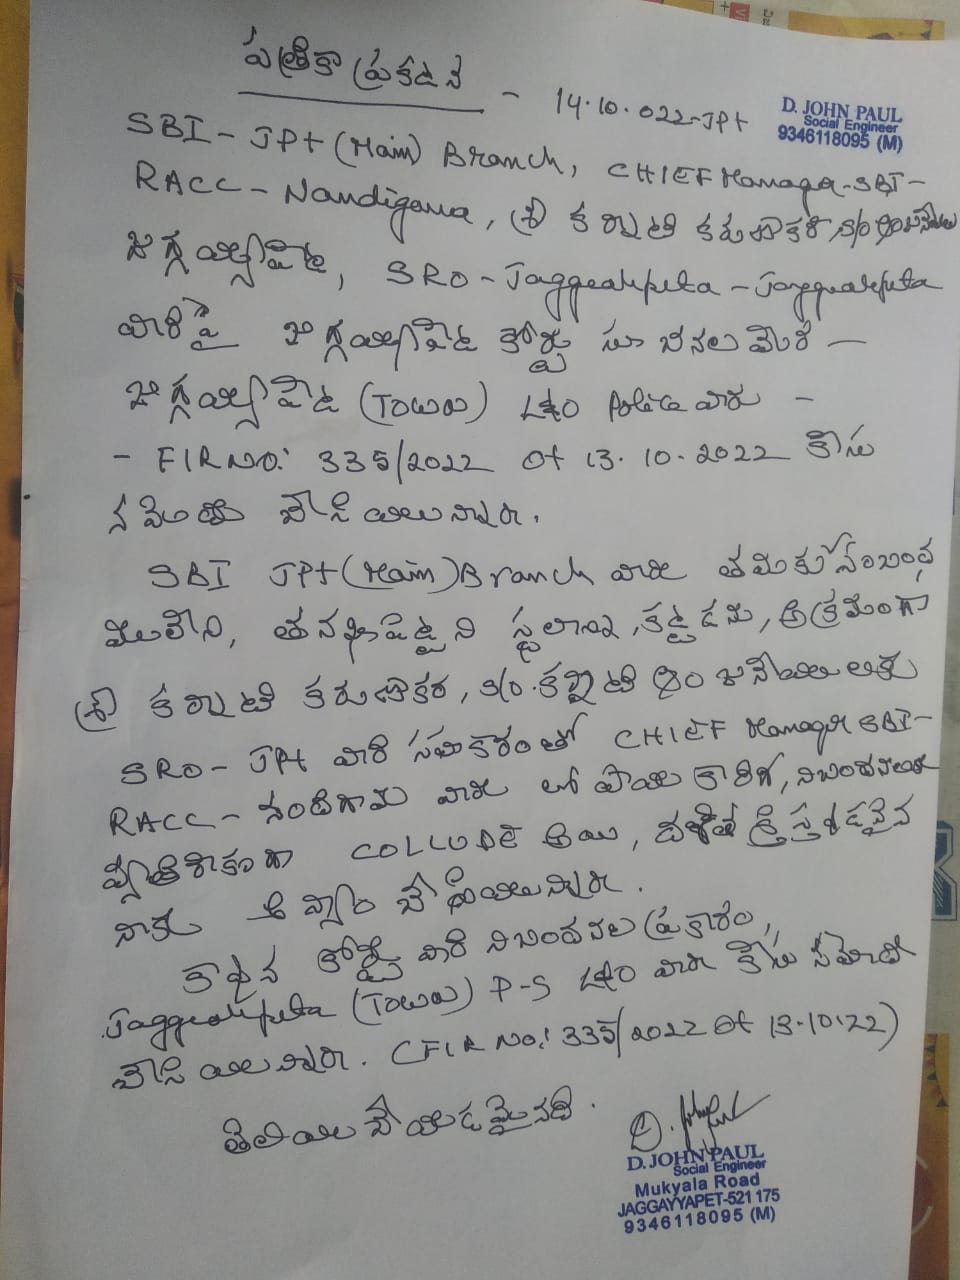 పత్రికా ప్రకటన - 14.10.022-JPt
D. JOHN PAUL
Social Engineer
9346118095 (M)
SBI - JPt (Main) Branch, CHIEF Manager-SBI-
RACC - Nandigama, శ్రీ కర్నాటి కరుణాకర్, S/o ఆంజనేయులు
జగ్గయ్యపేట, SRO - Jaggaiahpeta - Jaggaiahpeta
వారిపై జగ్గయ్యపేట కోర్టు సూచనల మేరకు -
జగ్గయ్యపేట (Town) Police వారు -
- FIR NO: 335/2022 Of 13.10.2022 కేసు
నమోదు చేసియున్నారు.
SBI JPt (Main) Branch వారు తమకు సంబంధ
ములేని, తనఖా పెట్టని స్థలాన్ని, కట్టడము, అక్రమంగా
శ్రీ కర్నాటి కరుణాకర్, S/o. కర్నాటి ఆంజనేయులుకు
SRO - JPt వారి సహకారంతో CHIEF Manager SBI-
RACC - నందిగామ వారు నిబంధనలకు
వ్యతిరేకంగా COLLUDE అయి, దళిత క్రైస్తవుడనైన
నాకు అన్యాయం చేసియున్నారు.
కావున కోర్టు వారి నిబంధనల ప్రకారం,
Jaggaiahpeta (Town) P-S వారు కేసు నమోదు
చేసియున్నారు. (FIR No: 335/2022 Of 13.10.22)
తెలియచేయడమైనది.
D. JOHN PAUL
Social Engineer
Mukyala Road
JAGGAYYAPET-521 175
9346118095 (M)